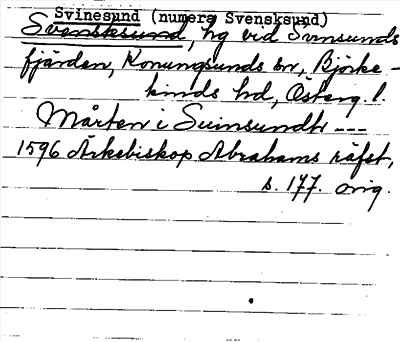 Svinesund (numera Svensksund)
Svensksund, hg vid Svinsunds
fjärden, Konungsunds sn, Björke-
kinds hd, Österg l.
Mårten i Suinsundh ---
1596 Ärkebiskop Abrahams räfst,
s. 177. orig.